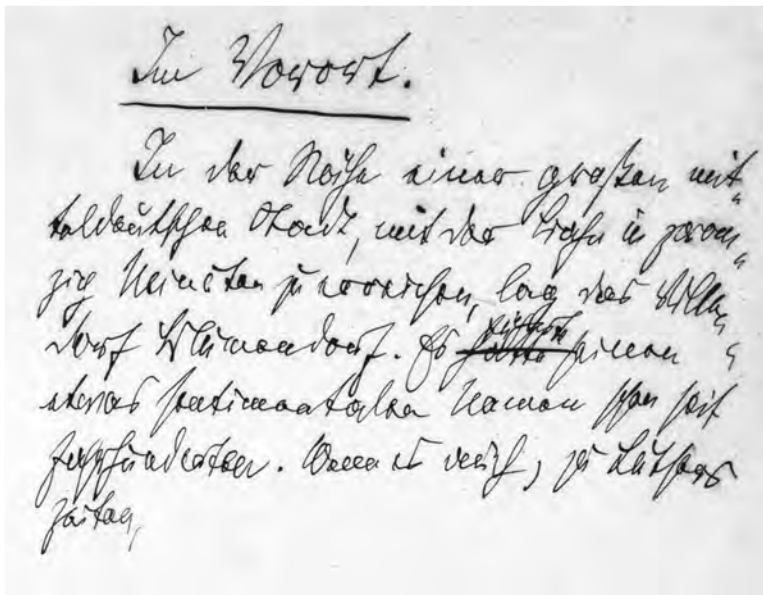 Im Vorort.
In der Nähe einer großen mit-
teldeutschen Stadt, mit der Bahn in zwan-
zig Minuten zu erreichen, lag das Villen-
dorf Blumendorf. Es führte seinen
etwas sentimentalen Namen schon seit
Jahrhunderten. Wenn es auch, zu Luthers
Zeiten,